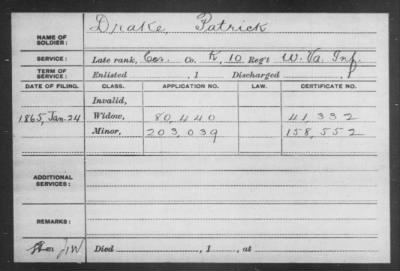 NAME OF SOLDIER: Drake, Patrick
SERVICE: Late rank, Cor. Co. K, 10 Reg't W. Va. Inf.
TERM OF SERVICE: Enlisted , 1 Discharged , 1
DATE OF FILING. CLASS. APPLICATION NO. LAW. CERTIFICATE NO.
Invalid,
1865, Jan. 24 Widow, 80,440 41,332
Minor, 203,039 158,552
ADDITIONAL SERVICES:
REMARKS:
Died , 1 , at